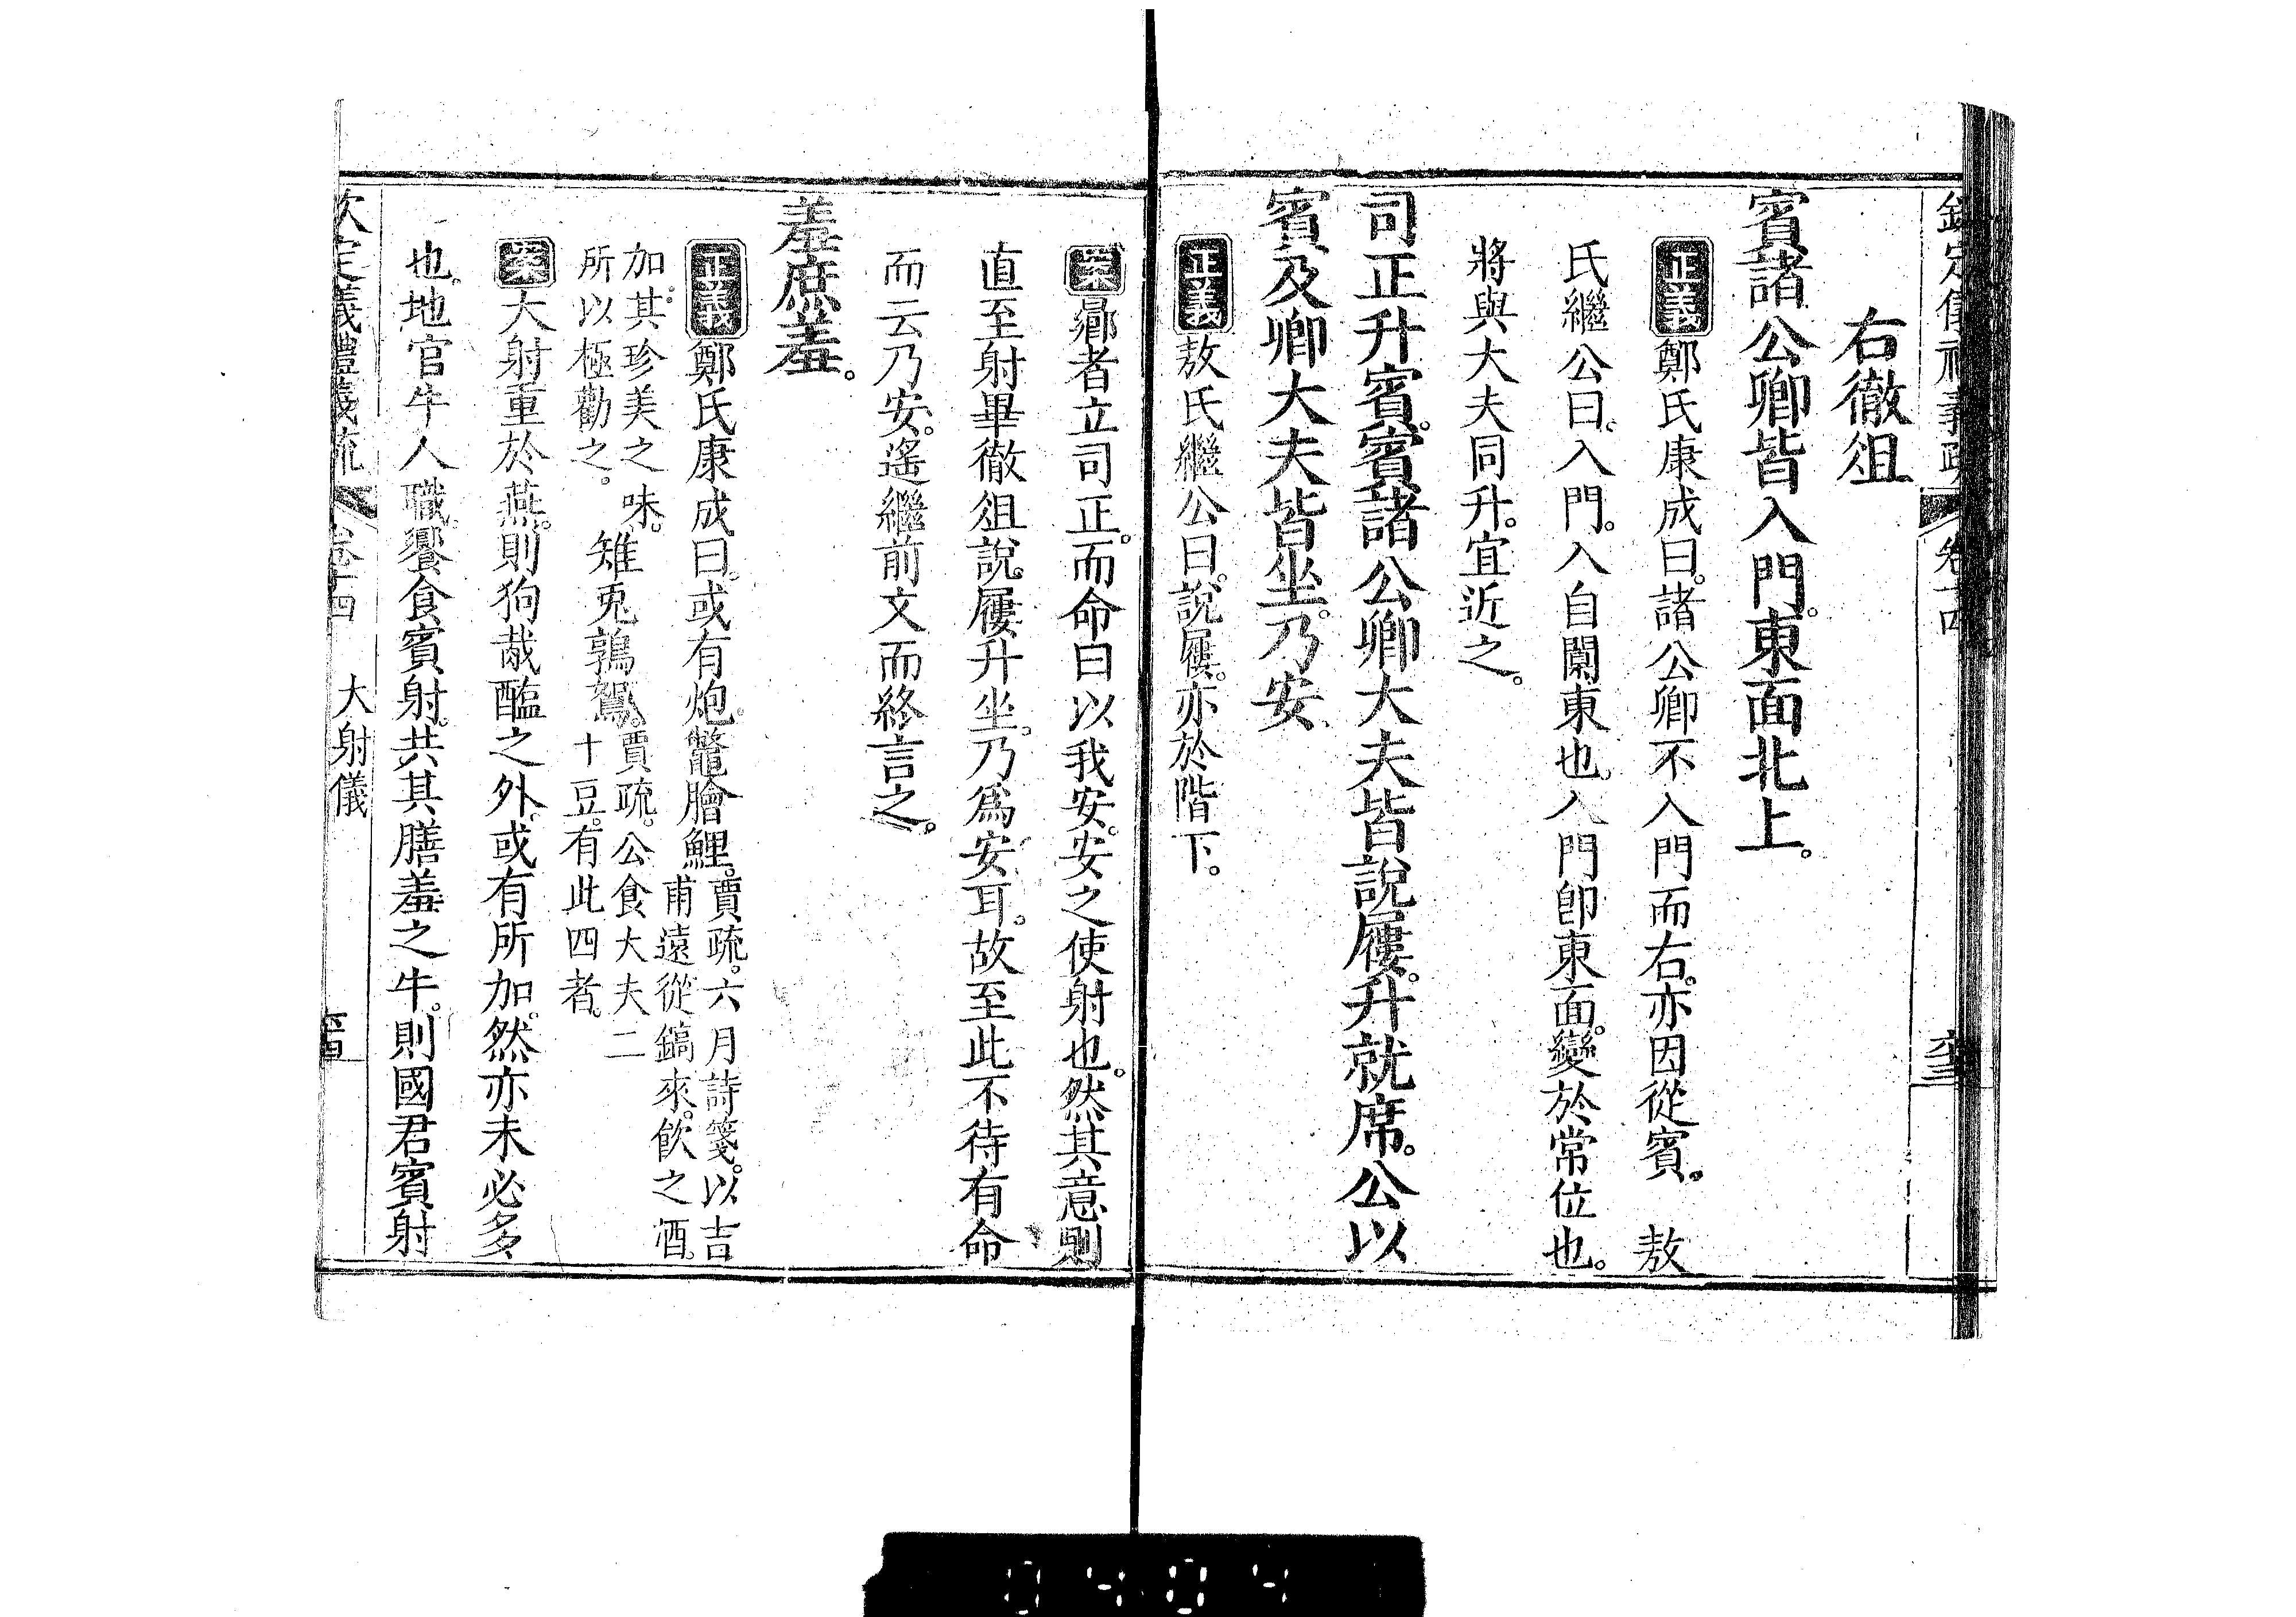 欽定儀禮義疏 卷十四
右徹俎
賓諸公卿皆入門。東面北上。
正義鄭氏康成曰。諸公卿不入門而右。亦因從賓。 敖
氏繼公曰。入門。入自闑東也。入門卽東面。變於常位也。
將與大夫同升。宜近之。
司正升賓。賓諸公卿大夫皆說屨。升就席。公以
賓及卿大夫皆坐。乃安
正義敖氏繼公曰。說屨。亦於階下。
案曏者立司正。而命曰以我安。安之使射也。然其意則
直至射畢徹俎說屨升坐。乃爲安耳。故至此不待有命
而云乃安。遙繼前文而終言之。
羞庶羞。
正義鄭氏康成曰。或有炮。鼈膾鯉。賈疏。六月詩箋。以吉
甫遠從鎬來。飲之酒。
加。其珍美之味。
所以極勸之。 雉兎鶉鴽。賈疏。公食大夫二
十豆。有此四者。
案大射重於燕。則狗胾醢之外。或有所加。然亦未必多
也。地官牛人職。饗食賓射。共其膳羞之牛。則國君賓射
欽定儀禮義疏 卷十四 大射儀
0404